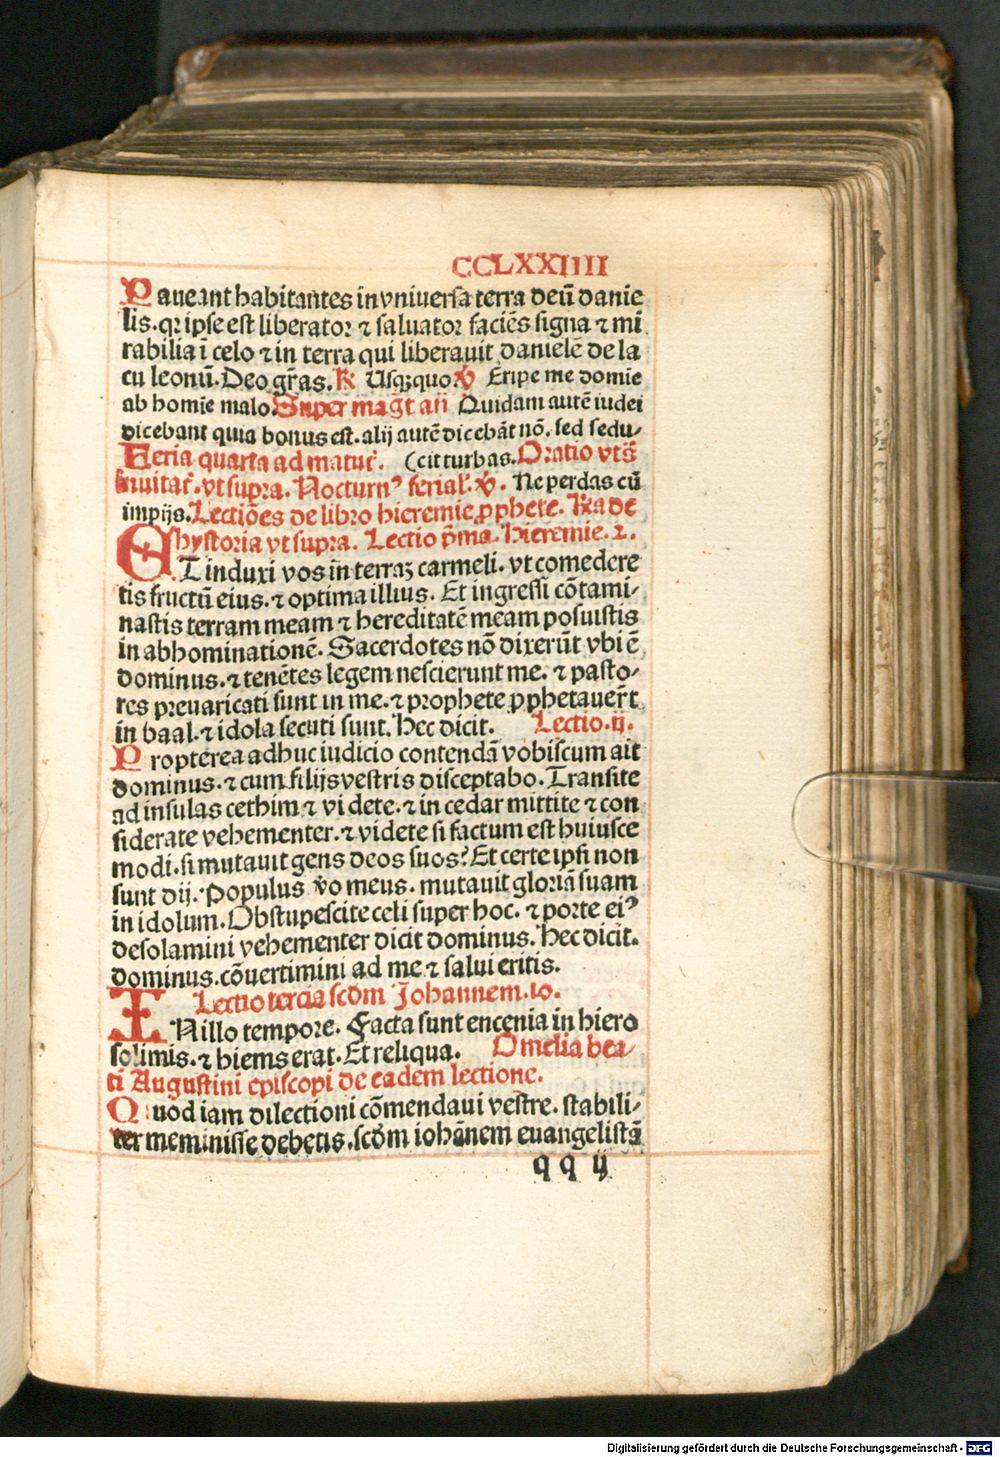 CCLXXIIII
Paueant habitantes in vniuersa terra deū danie
lis. qꝛ ipse est liberatoꝛ ⁊ saluatoꝛ faciēs signa ⁊ mi
rabilia ī celo ⁊ in terra qui liberauit danielē de la
cu leonū. Deo gr̄as. ℟ Usqꝫquo. ℣ Eripe me domie
ab homie malo. Super magt añ Quidam autē iudei
dicebant quia bonus est. alij autē dicebāt nō. sed sedu⸗
Feria quarta ad matut̄. (cit turbas. Oratio vts̄
Inuitat̄. vt supra. Nocturnꝰ ferial̄. ℣. Ne perdas cū
impijs. Lectiōes de libro hieremie ꝓphete. R̄ia de
hystoria vt supra. Lectio p̄ma. Hieremie. 2.
ET induxi vos in terraꝫ carmeli. vt comedere
tis fructū eius. ⁊ optima illius. Et ingressi cōtami⸗
nastis terram meam ⁊ hereditatē meam posuistis
in abhominationē. Sacerdotes nō dixerūt vbi ē
dominus. ⁊ tenētes legem nescierunt me. ⁊ pasto⸗
res preuaricati sunt in me. ⁊ prophete ꝓphetauer̄t
in baal. ⁊ idola secuti sunt. Hec dicit. Lectio. ij.
Propterea adhuc iudicio contendā vobiscum ait
dominus. ⁊ cum filijs vestris disceptabo. Transite
ad insulas cethim ⁊ videte. ⁊ in cedar mittite ⁊ con
siderate vehementer. ⁊ videte si factum est huiusce
modi. si mutauit gens deos suos? Et certe ipsi non
sunt dij. Populus v̄o meus. mutauit gloriā suam
in idolum. Obstupescite celi super hoc. ⁊ porte eiꝰ
desolamini vehementer dicit dominus. Hec dicit.
dominus. cōuertimini ad me ⁊ salui eritis.
Lectio tercia scd̄m Johannem. 10.
IN illo tempore. Facta sunt encenia in hiero
solimis. ⁊ hiems erat. Et reliqua. Omelia bea⸗
ti Augustini episcopi de eadem lectione.
Quod iam dilectioni cōmendaui vestre. stabili⸗
ter meminisse debetis. scd̄m iohānem euangelistā
qq ij
Digitalisierung gefördert durch die Deutsche Forschungsgemeinschaft - DFG